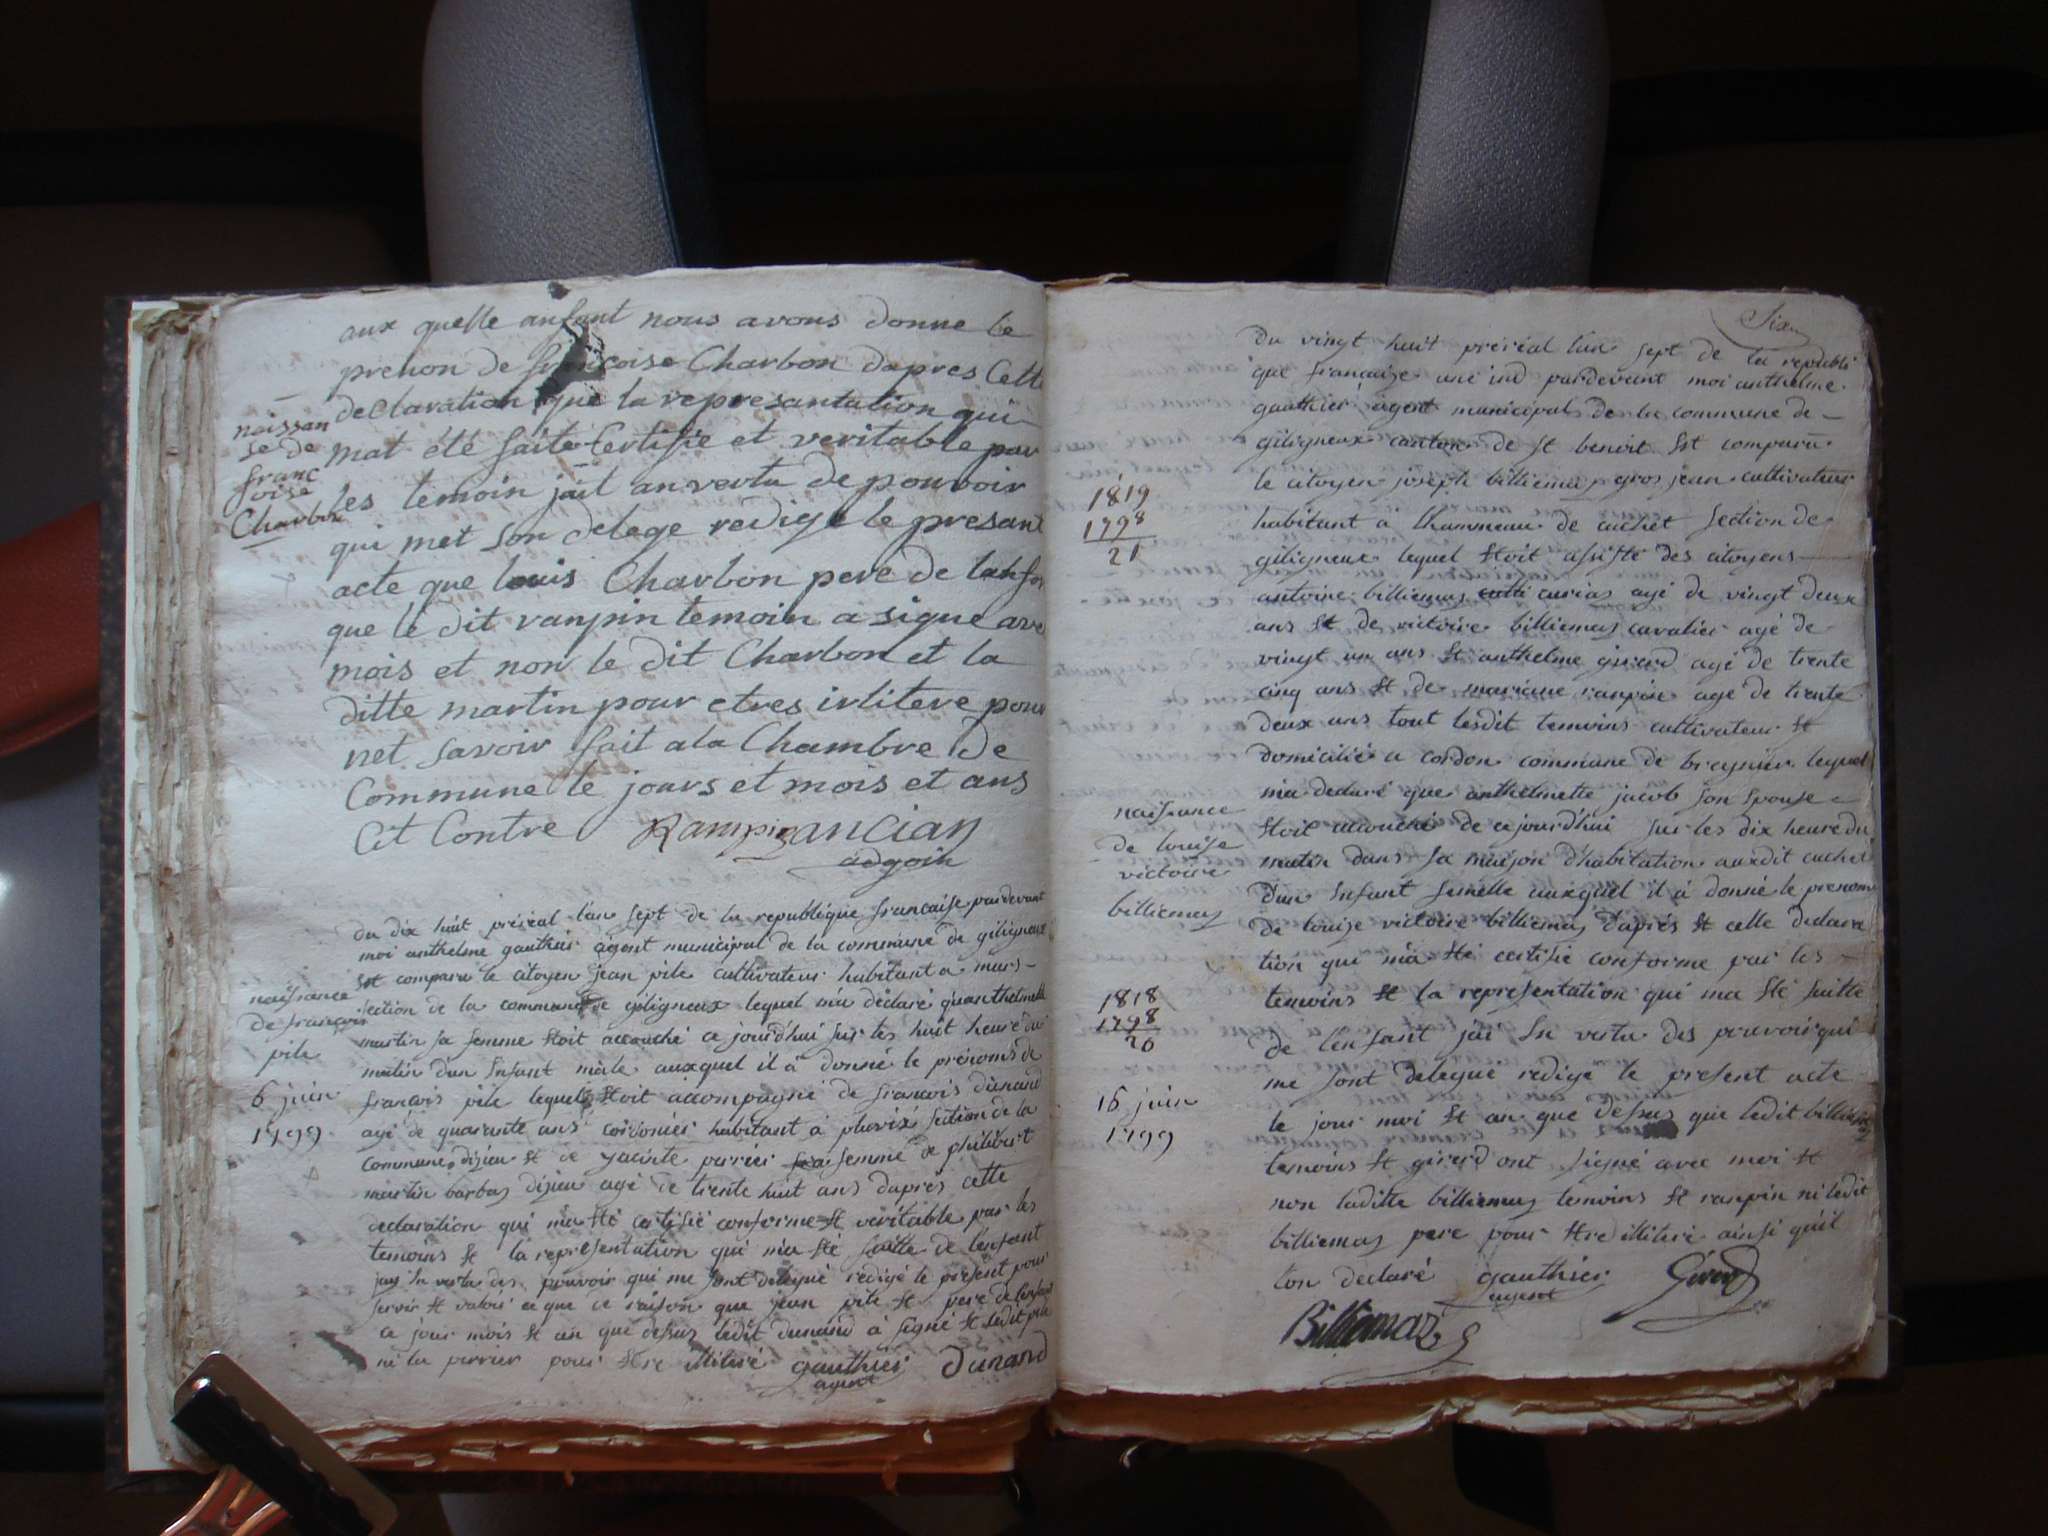 aux quelle anfant nous avons donne le
prenon de francoise Charbon dapres Cette
declaration que la represantation qui
mat été faite Certifie et veritable par
les temoin jail anvertu de pouvoir
qui met son delege redige le presant
acte que louis Charbon pere de lanfan
que le dit ranpin temoin a signe ave
mois et non le dit Charbon et la
ditte martin pour etres irlitere pour
net savoir fait ala Chambre de
Commune le jours et mois et ans
Cit Contre Rampin ancian
adgoin
naissan
se de
franc
oise
Charbon
du dix huit préréal l'an sept de la republique francaise pardevant
moi anthelme gauthier agent municipal de la commune de giligneux
Est comparu le citoyen jean pile cultivateur habitant a murs
section de la commune de giligneux lequel m'a déclaré qu'anthelmette
martin sa femme Etoit accouché ce jourd'hui sur les huit heure du
matin dun Enfant mâle auxquel il à donné le prénoms de
francois pile lequel Etoit accompagné de francois dunand
agé de quarante ans cordonier habitant à pluvis section de la
commune dizieu Et de yacinte perrier femme de philibert
martin barbas dizieu agé de trente huit ans daprès cette
declaration qui ma Eté certifié conforme Et véritable par les
temoins Et la représentation qui m'a Eté faitte de l'enfant
jay En vertu des pouvoir qui me sont delegué rédigé le présent pour
servir Et valoir ce que de raison que jean pile Et pere de l'enfant
ce jour mois Et an que dessus ledit dunand à signé Et ledit pile
ni la perrier pour Etre illitéré gauthier Dunand
agent
naissance
de francois
pile
6 juin
1799
Six
du vingt huit préréal l'an sept de la republi
que française une ind pardevant moi anthelme
gauthier agent municipal de la commune de
giligneux canton de st benoit Est comparu
le citoyen joseph billiemas gros jean cultivateur
habitant a lhammeau de cuchet section de
giligneux lequel Etoit assisté des citoyens
antoine billiemas curias agé de vingt deux
ans Et de victoire billiemas cavalier agé de
vingt un ans Et anthelme girerd agé de trente
cinq ans Et de mariane ranpin agé de trente
deux ans tout lesdit temoins cultivateur Et
domicilié a cordon commune de bregnier lequel
ma declaré que anthelmette jacob son Epouse
Etoit accouché de cejourd'hui sur les dix heure du
matin dans sa maison d'habitation auxdit cuchet
dun Enfant femelle auxquel il à donné le prenom
de louise victoire billiemas daprès Et celle declara
tion qui m'a Eté certifié conforme par les
temoins Et la représentation qui ma Eté faitte
de l'enfant jai En vertu des pouvoir qui
me sont delegué rédigé le présent acte
le jour moi Et an que dessus que ledit billiemas
temoins Et girerd ont signé avec moi Et
non laditte billiemas temoins Et ranpin ni ledit
billiemas pere pour Etre illitéré ainsi qu'il
lon declaré gauthier Girerd
agent
Billiemaz
1819
1798
21
naissance
de louise
victoire
billiemas
1818
1798
20
16 juin
1799